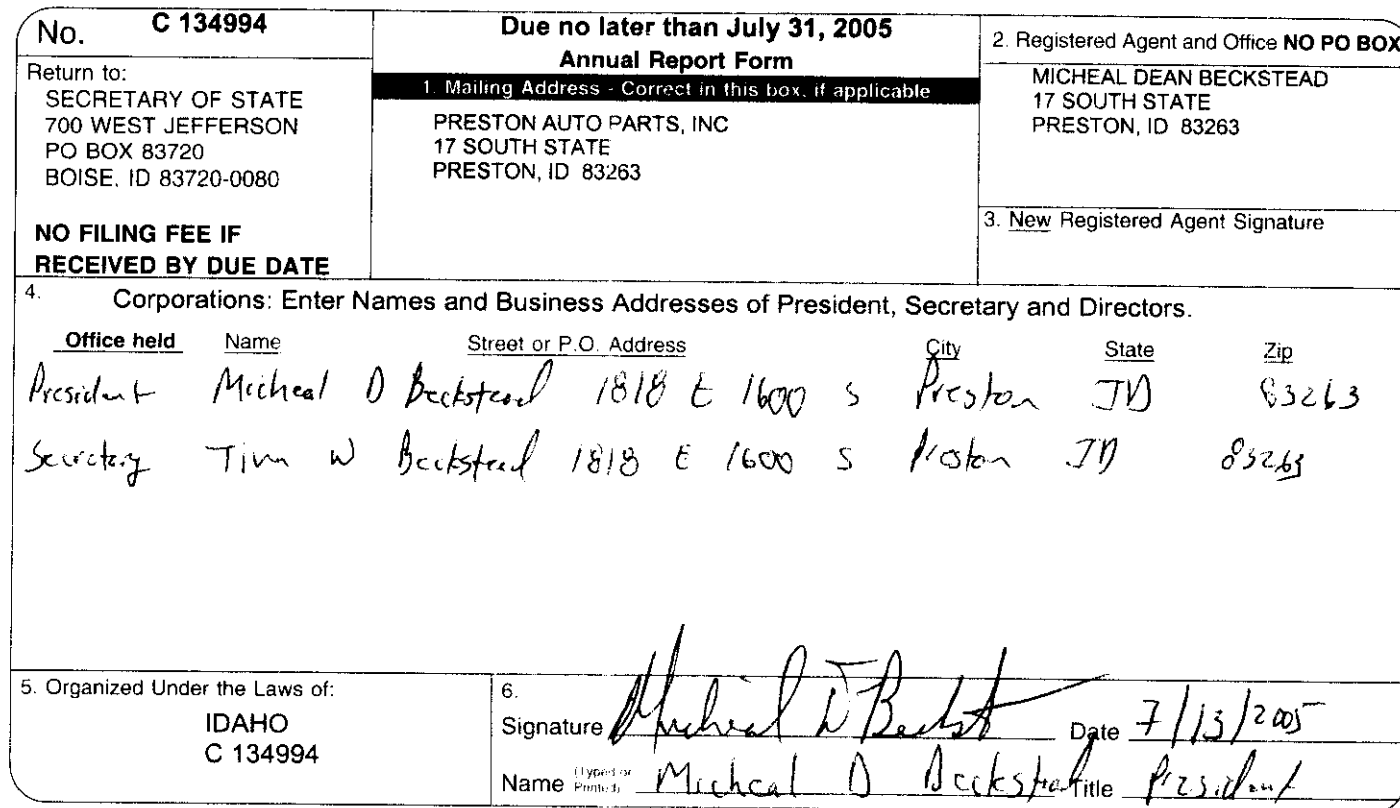 No. C 134994
Return to:
SECRETARY OF STATE
700 WEST JEFFERSON
PO BOX 83720
BOISE, ID 83720-0080
NO FILING FEE IF
RECEIVED BY DUE DATE
Due no later than July 31, 2005
Annual Report Form
1. Mailing Address - Correct in this box, if applicable
PRESTON AUTO PARTS, INC
17 SOUTH STATE
PRESTON, ID 83263
2. Registered Agent and Office NO PO BOX
MICHEAL DEAN BECKSTEAD
17 SOUTH STATE
PRESTON, ID 83263
3. New Registered Agent Signature
4. Corporations: Enter Names and Business Addresses of President, Secretary and Directors.
Office held Name Street or P.O. Address City State Zip
President Micheal D Beckstead 1818 E 1600 S Preston ID 83263
Secretary W Beckstead 1818 E 1600 S Preston ID 83263
5. Organized Under the Laws of:
IDAHO
C 134994
6.
Signature Micheal D Beckst Date 7/13/2005
Name (Typed or Printed) Micheal D Beckstead Title President